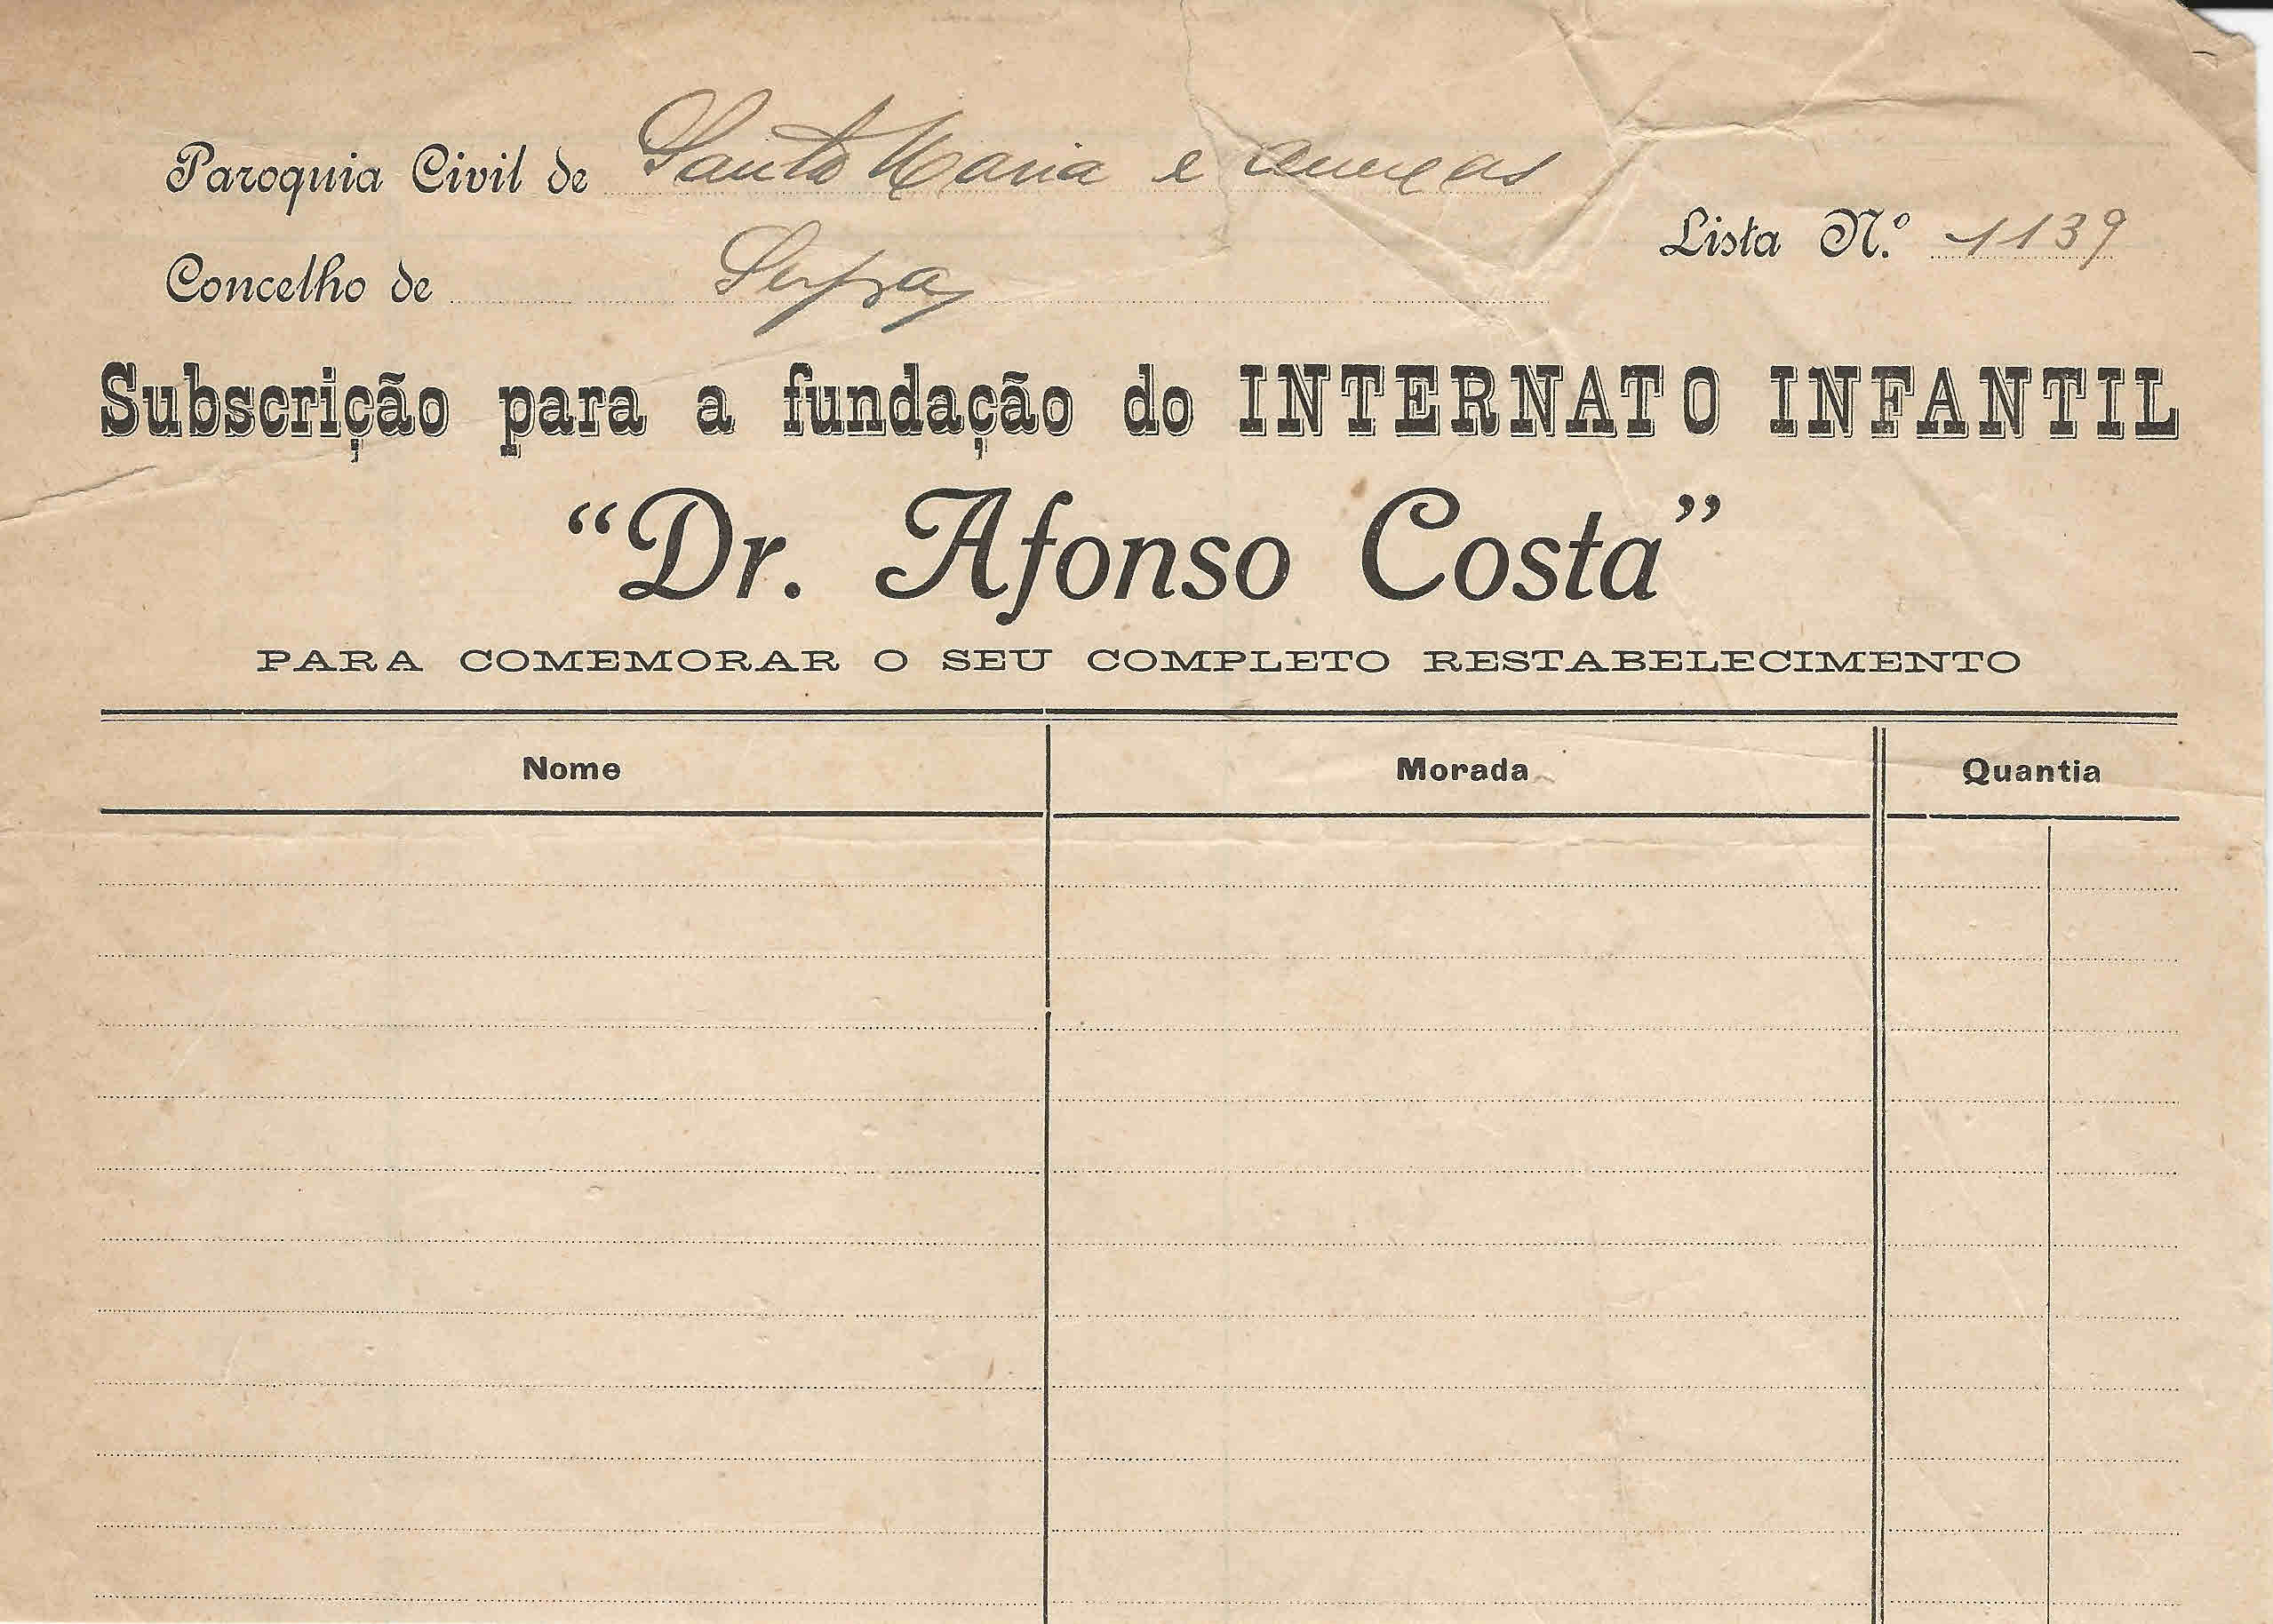 Paroquia Civil de Santa Maria e anexas
Lista N.º 1139
Concelho de Serpa
Subscrição para a fundação do INTERNATO INFANTIL
“Dr. Afonso Costa”
PARA COMEMORAR O SEU COMPLETO RESTABELECIMENTO
Nome Morada Quantia